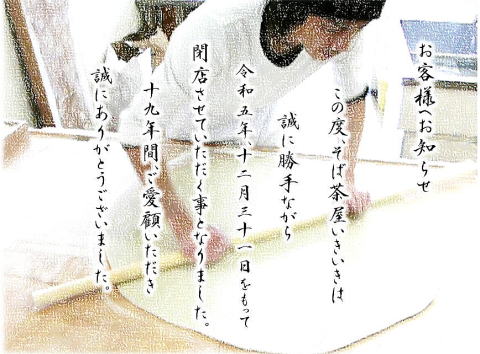 お客様へお知らせ
この度、そば茶屋いきいきは
誠に勝手ながら
令和五年、十二月三十一日をもって
閉店させていただく事となりました。
十九年間、ご愛顧いただき
誠にありがとうございました。